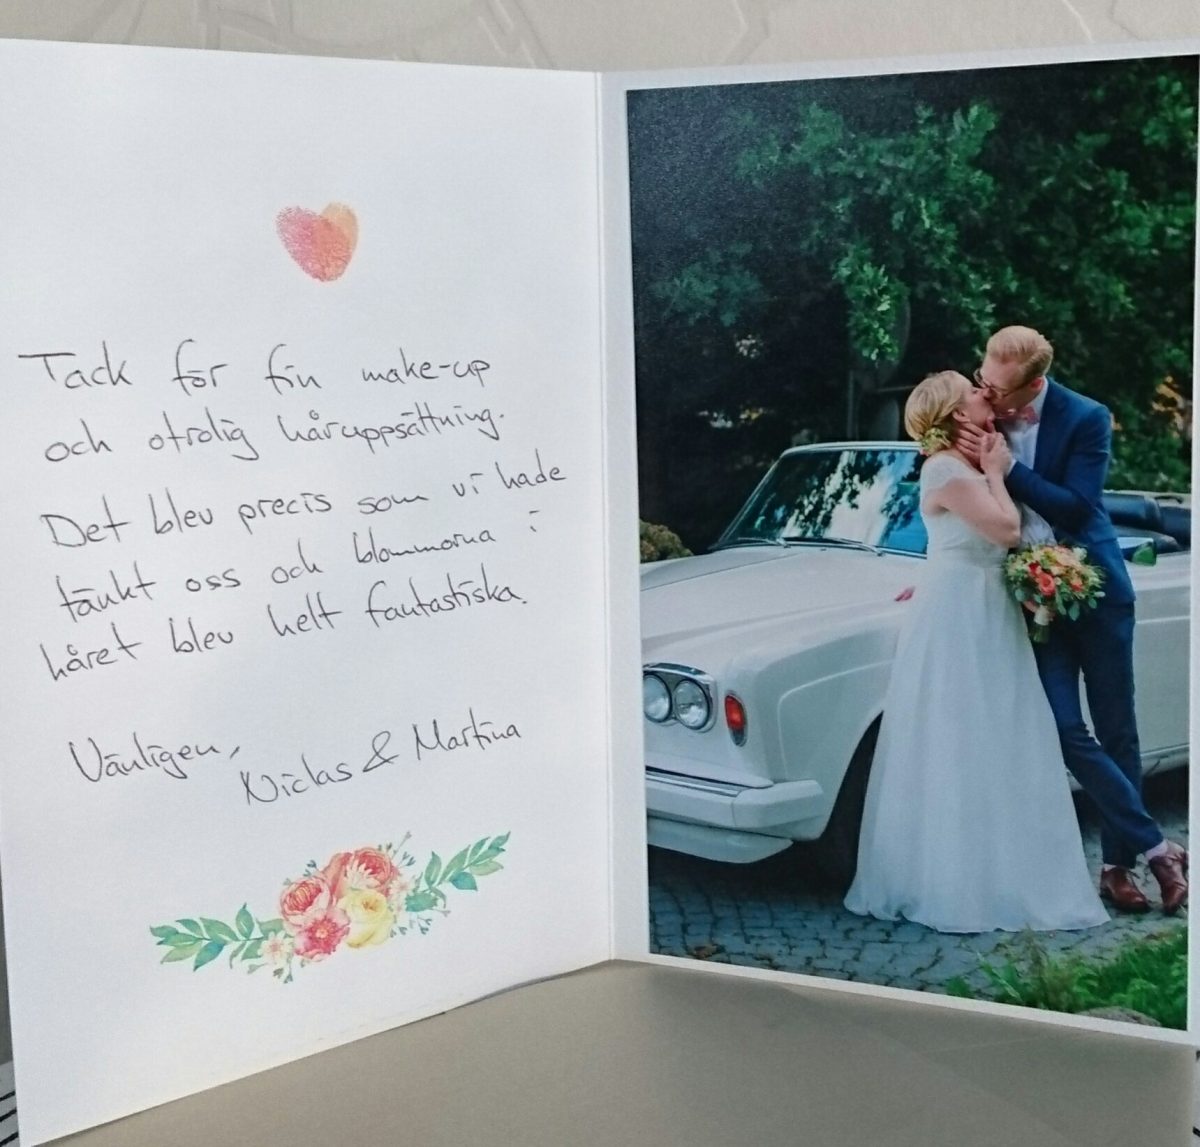 Tack för fin make-up
och otrolig håruppsättning.
Det blev precis som vi hade
tänkt oss och blommorna i
håret blev helt fantastiska.
Vänligen,
Niclas & Martina